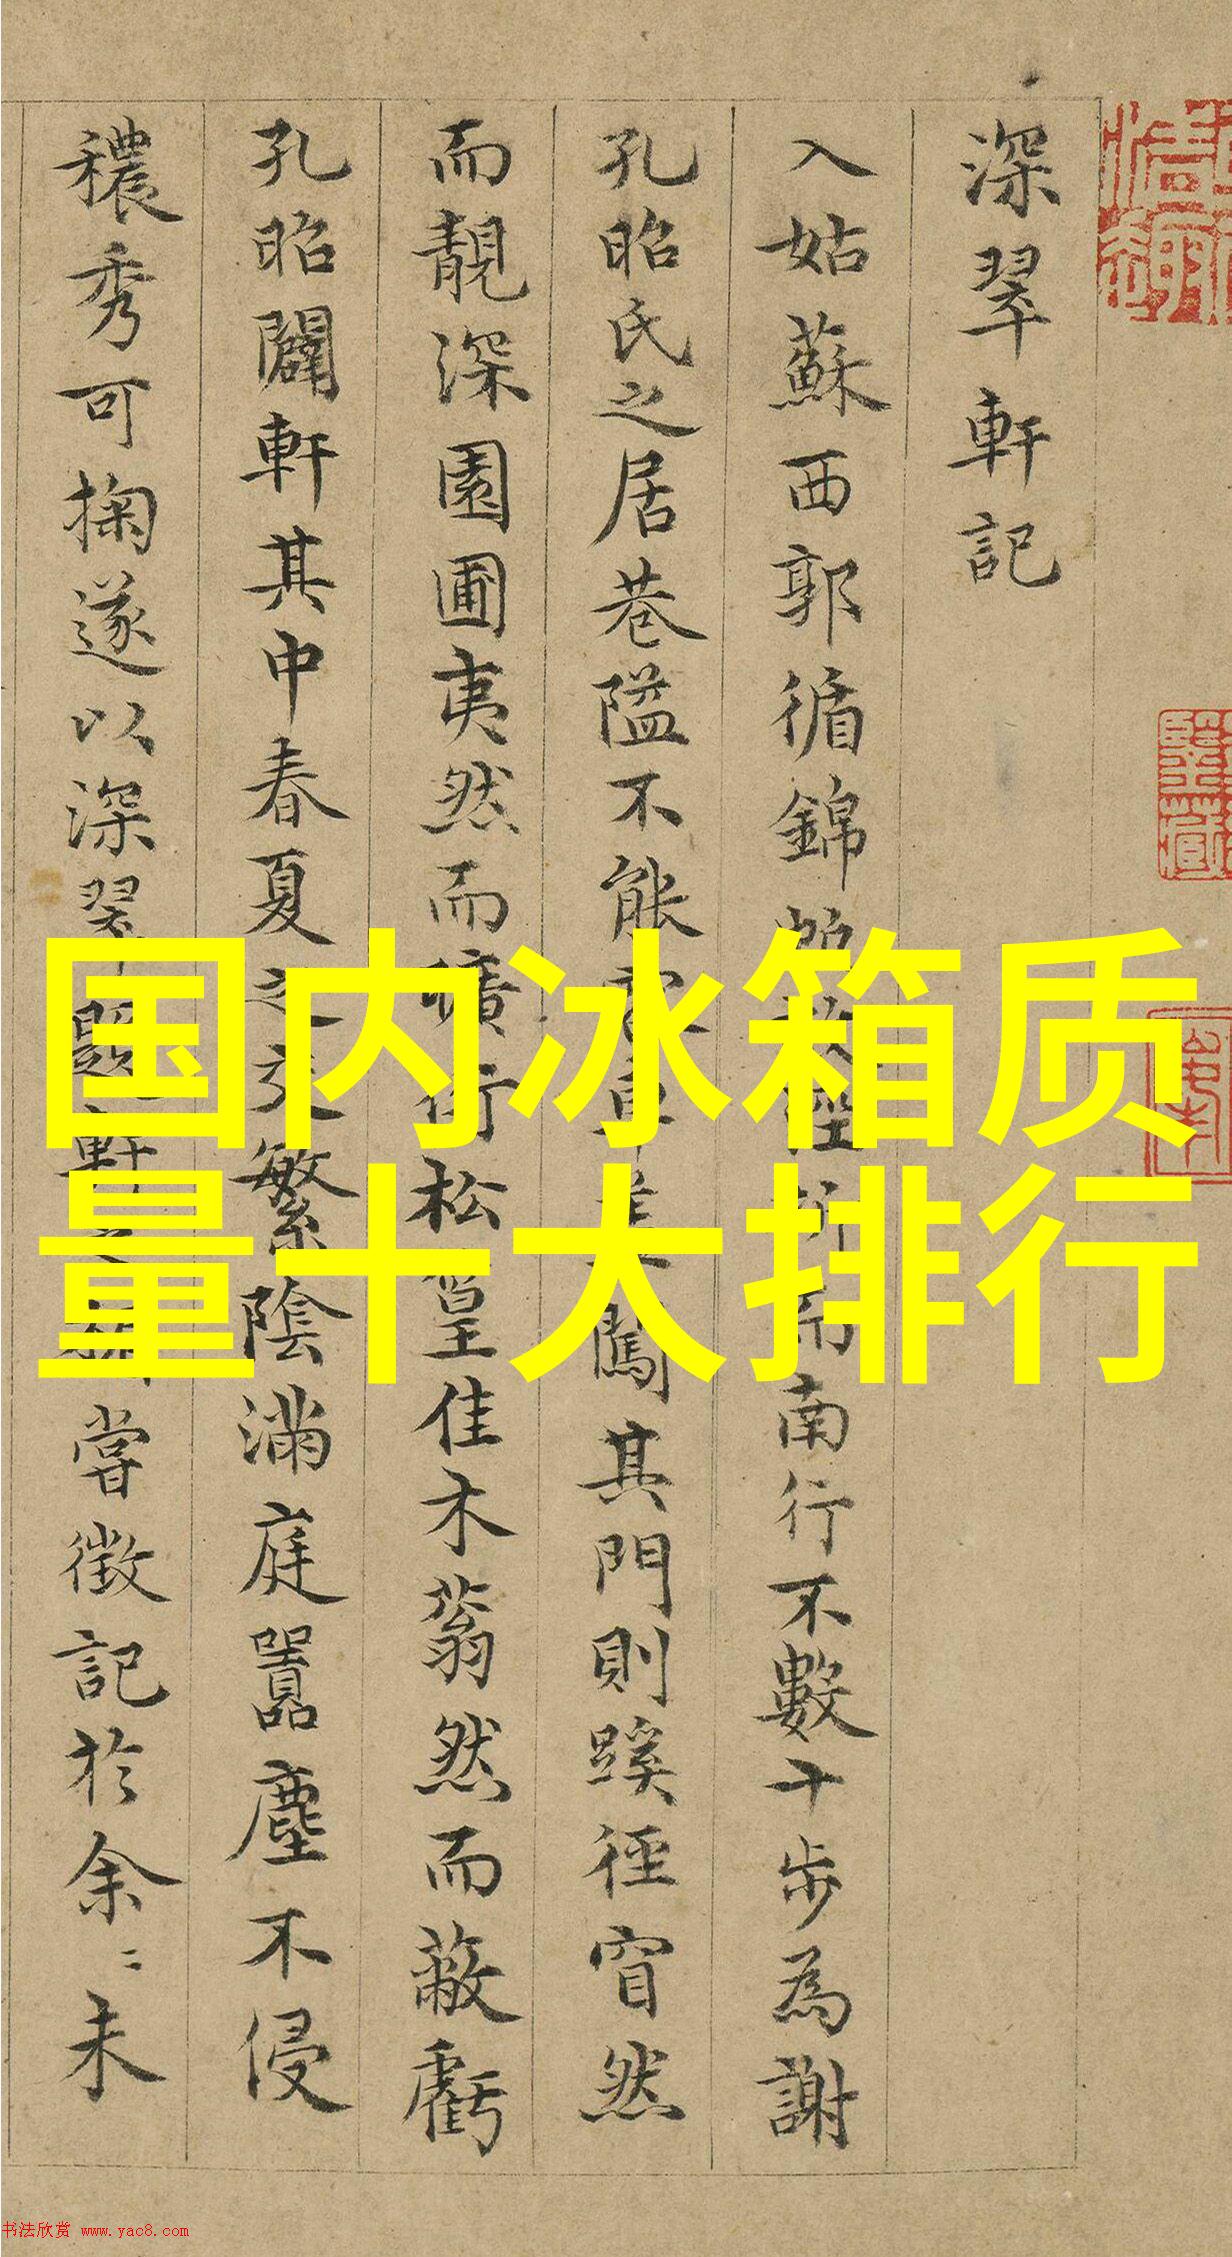 深翠軒記
入姑蘇西郭循錦南行不數十步為謝
孔昭氏之居巷隘不能其門則蹊徑窅然
而靚深園圃夷然而曠衍松篁佳木蓊然而蔽虧
孔昭闢軒其中春夏之交繁陰滿庭囂塵不侵
穠秀可掬遂以深翠題軒嘗徵記於余〻未
国内冰箱质
量十大排行
书法欣赏 www.yac8.com